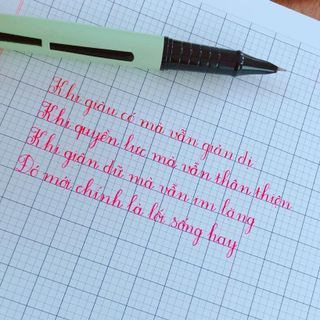 Khi giàu có mà vẫn giản dị
Khi quyền lực mà vẫn thân thiện
Khi giận dữ mà vẫn im lặng
Đó mới chính là lối sống hay